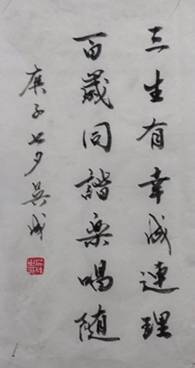 三生有幸成連理
百歲同諧樂唱随
庚子七夕吴成